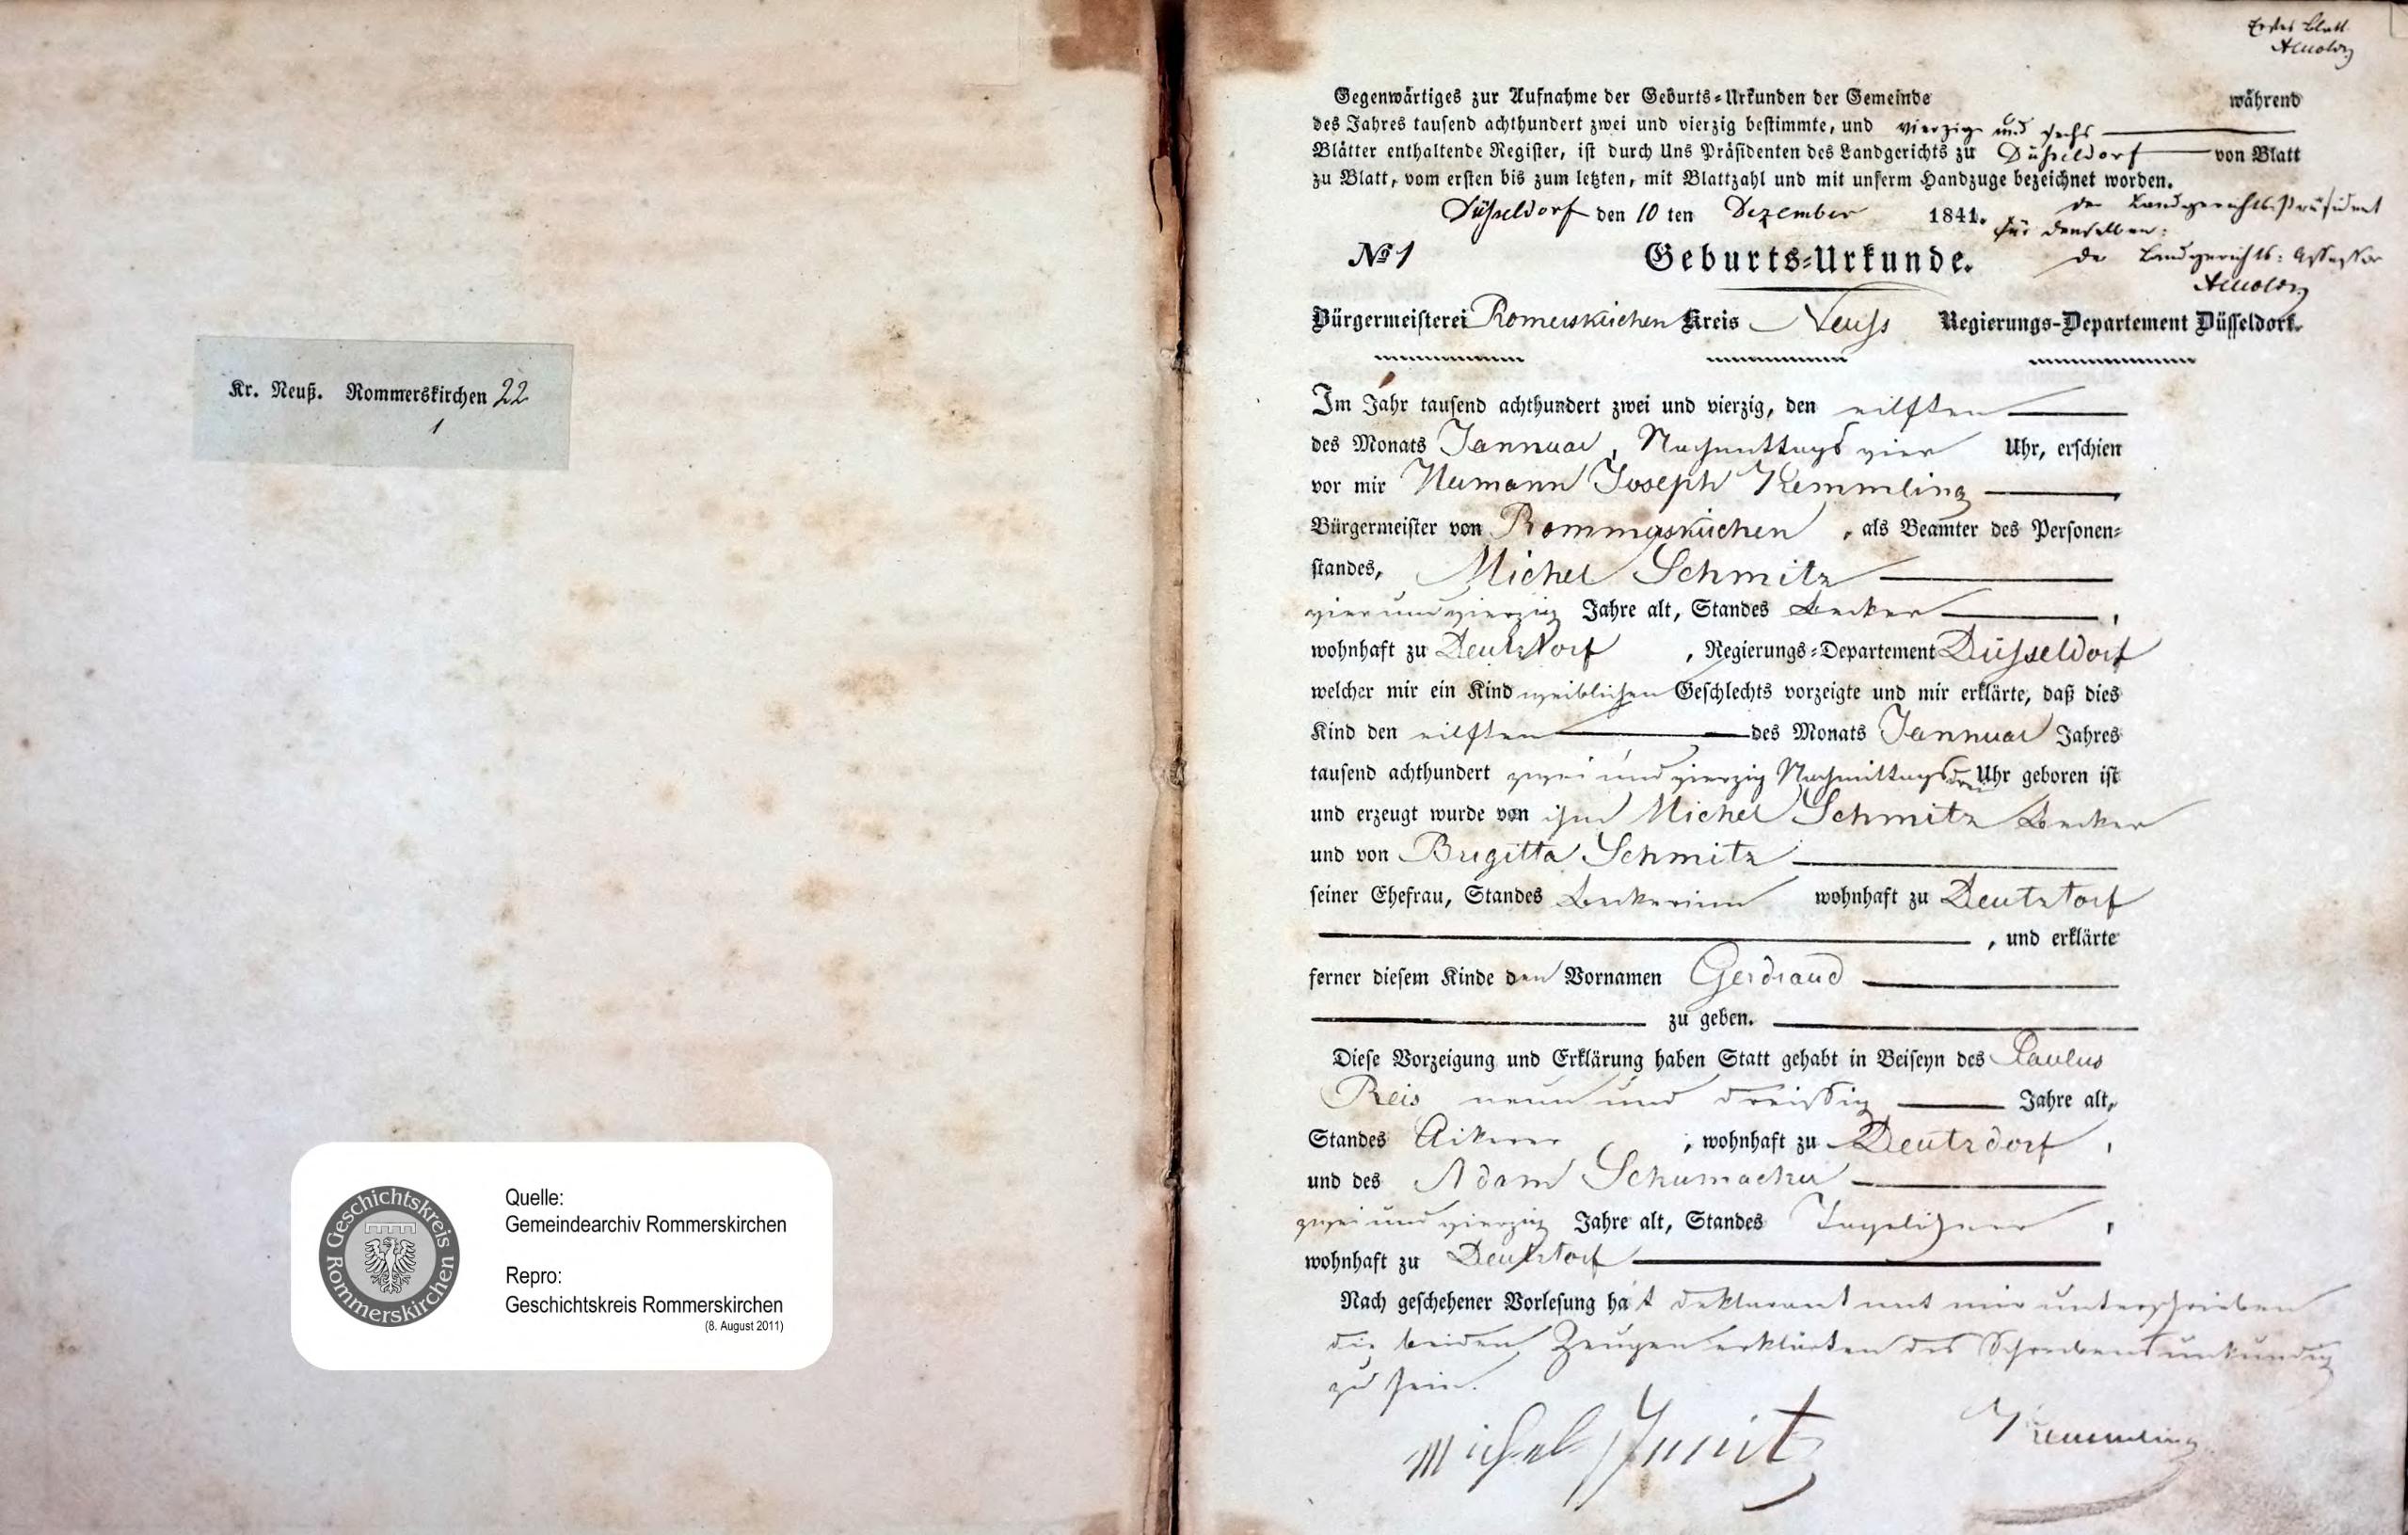 Kr. Neuß. Rommerskirchen 22
1
Geschichtskreis Rommerskirchen
Quelle:
Gemeindearchiv Rommerskirchen
Repro:
Geschichtskreis Rommerskirchen
(8. August 2011)
Erstes Blatt
Gegenwärtiges zur Aufnahme der Geburts-Urkunden der Gemeinde während
des Jahres tausend achthundert zwei und vierzig bestimmte, und vierzig und sechs
Blätter enthaltende Register, ist durch Uns Präsidenten des Landgerichts zu Düsseldorf von Blatt
zu Blatt, vom ersten bis zum letzten, mit Blattzahl und mit unserm Handzuge bezeichnet worden.
Düsseldorf den 10 ten Dezember 1841.
der Landgerichts-Präsident
für denselben:
der Landgerichts-Assessor
No 1 Geburts-Urkunde.
Bürgermeisterei Romerskirchen Kreis Neuss Regierungs-Departement Düsseldorf.
Im Jahr tausend achthundert zwei und vierzig, den eilften
des Monats Jannuar, Nachmittags vier Uhr, erschien
vor mir Hermann Joseph Kemmling
Bürgermeister von Rommerskirchen, als Beamter des Personen-
standes, Michel Schmitz
vier und vierzig Jahre alt, Standes Becker,
wohnhaft zu Deutzdorf, Regierungs-Departement Düsseldorf
welcher mir ein Kind weiblichen Geschlechts vorzeigte und mir erklärte, daß dies
Kind den eilften des Monats Jannuar Jahres
tausend achthundert zwei und vierzig Nachmittags drei Uhr geboren ist
und erzeugt wurde von ihm Michel Schmitz Becker
und von Brigitta Schmitz
seiner Ehefrau, Standes Beckerinn wohnhaft zu Deutztorf
, und erklärte
ferner diesem Kinde den Vornamen Gerdraud
zu geben.
Diese Vorzeigung und Erklärung haben Statt gehabt in Beiseyn des Paulus
Reis neun und dreissig Jahre alt,
Standes Ackerer, wohnhaft zu Deutzdorf,
und des Adam Schumacher
zwei und vierzig Jahre alt, Standes Tagelöhner,
wohnhaft zu Deutztorf
Nach geschehener Vorlesung hat Deklarant mit mir unterschrieben
die beiden Zeugen erklärten des Schreibens unkundig
zu sein.
Michel Schmitz Kemmling